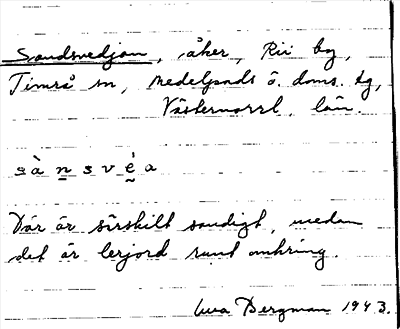 Sandsvedjan, åker, Rii by,
Timrå sn, Medelpads ö. doms. tg,
Västernorrl. län.
sà n s v é a
Där är särskilt sandigt, medan
det är lerjord runt omkring.
Bergman 1943.